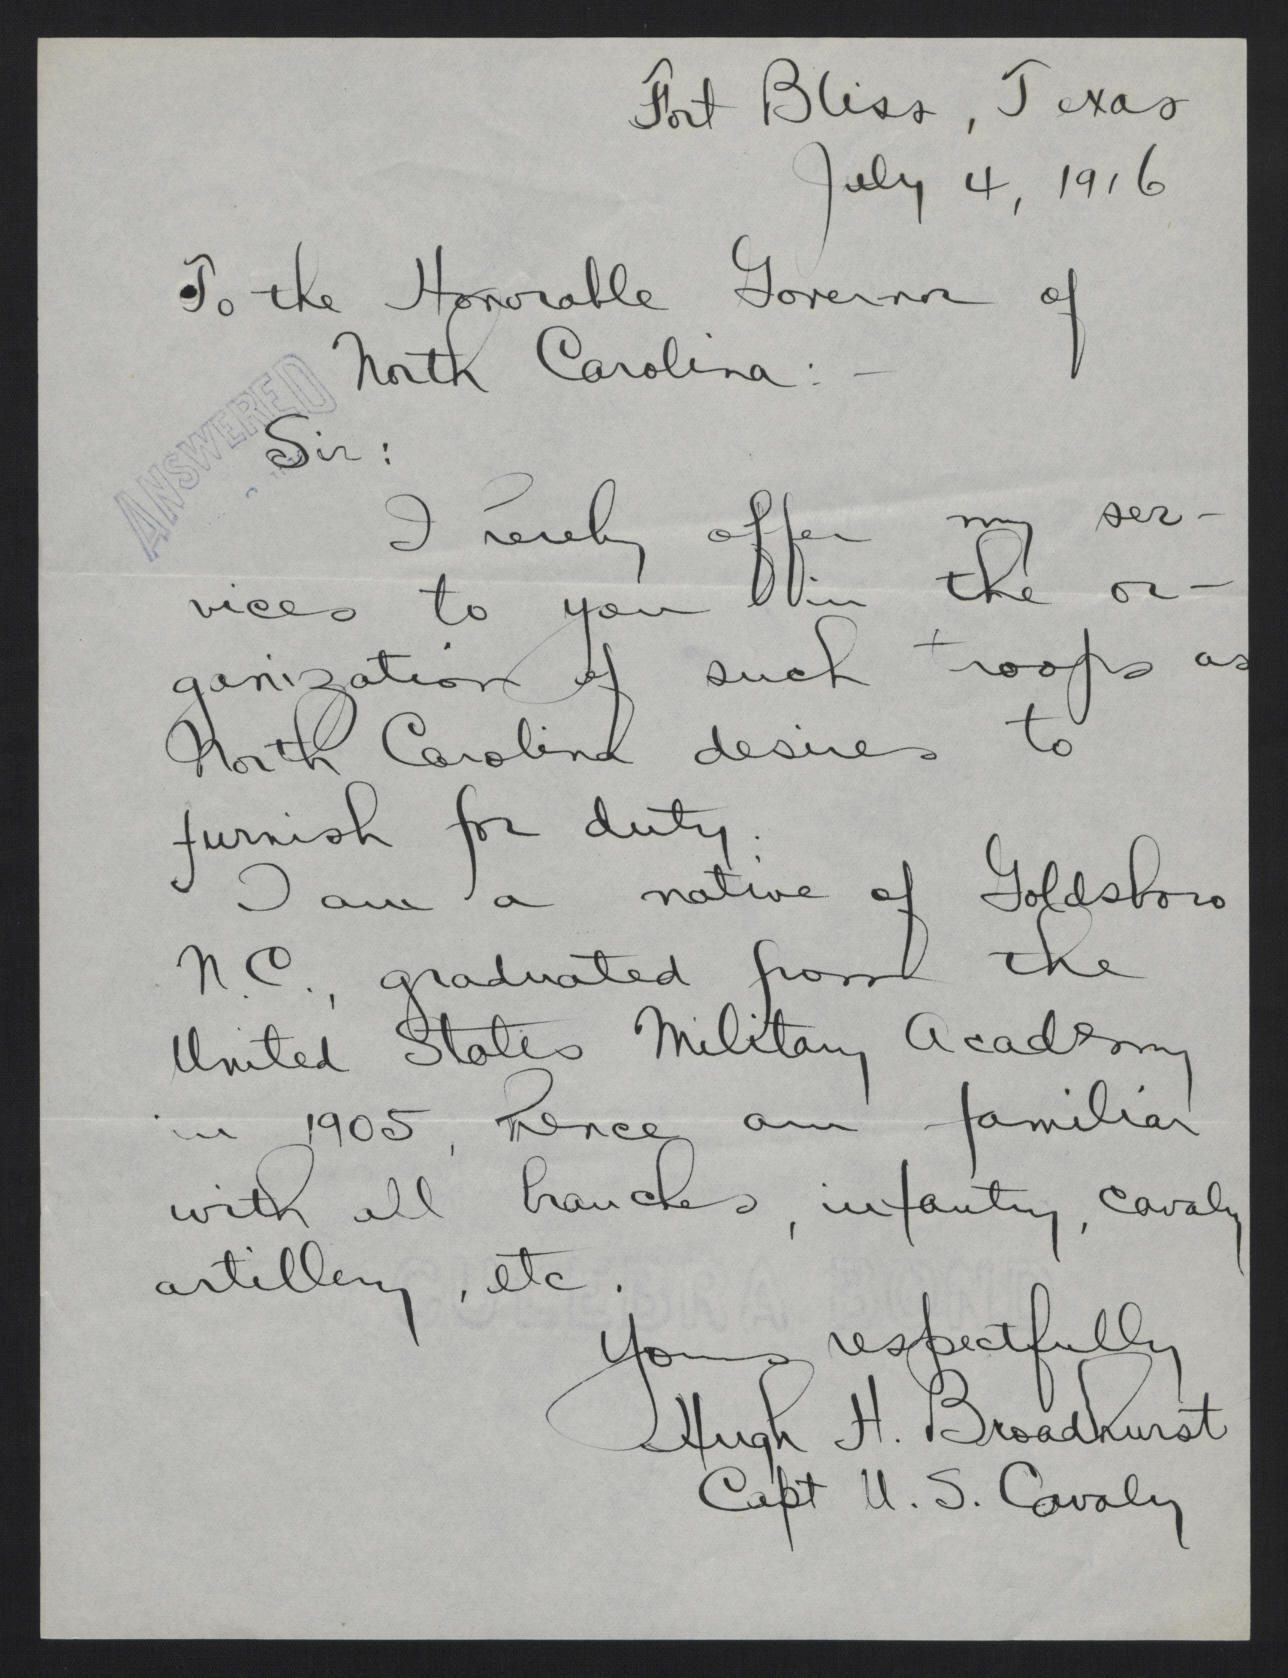 Fort Bliss, Texas
July 4, 1916
To the Honorable Governor of
North Carolina:-
ANSWERED
Sir:
I hereby offer my ser-
vices to you in the or-
ganization of such troops as
North Carolina desires to
furnish for duty.
I am a native of Goldsboro
N.C., graduated from the
United States Military Academy
in 1905, hence am familiar
with all branches, infantry, cavalry
artillery, etc.
Yours respectfully
Hugh H. Broadhurst
Capt U.S. Cavalry